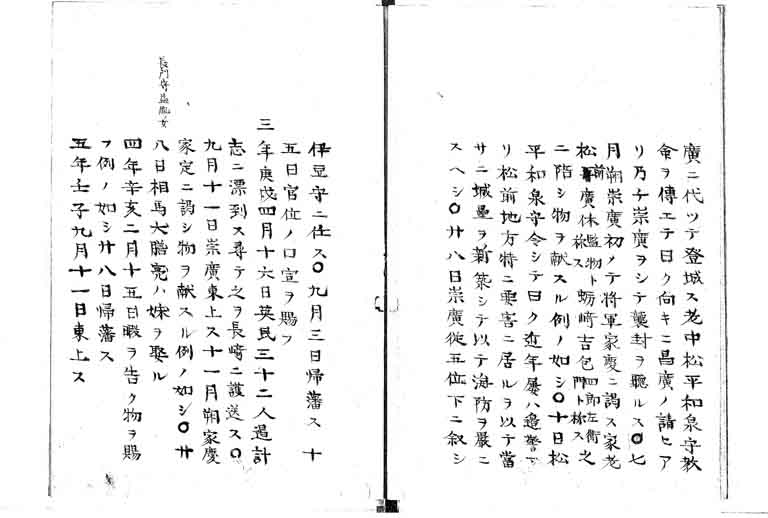 廣ニ代ツテ登城ス老中松平和泉守教
命ヲ傳エテ曰ク向キニ昌廣ノ請ヒア
リ乃チ崇廣ヲシテ襲封ヲ聽ルス〇七
月朔崇廣初メテ将軍家慶ニ謁ス家老
松前廣休監物ト称ス蛎﨑吉包四郎左衛門ト称ス之
ニ陪シ物ヲ献スル例ノ如シ〇十日松
平和泉守令シテ曰ク近年屢ハ邉警ア
リ松前地方特ニ要害ニ居ルヲ以テ當
サニ城壘ヲ新築シテ以テ海防ヲ嚴ニ
スヘシ〇廿八日崇廣従五位下ニ叙シ
伊豆守ニ任ス〇九月三日帰藩ス十
五日官位ノ口宣ヲ賜フ
三年庚戌四月十六日英民三十二人過計
志ニ漂到ス尋テ之ヲ長﨑ニ護送ス〇
九月十一日崇廣東上ス十一月朔家慶
家定ニ謁シ物ヲ献スル例ノ如シ〇廿
八日相馬大膳亮ハ妹ヲ娶ル
長門守益胤女
四年辛亥二月十五日暇ヲ告ク物ヲ賜
フ例ノ如シ廿八日帰藩ス
五年壬子九月十一日東上ス